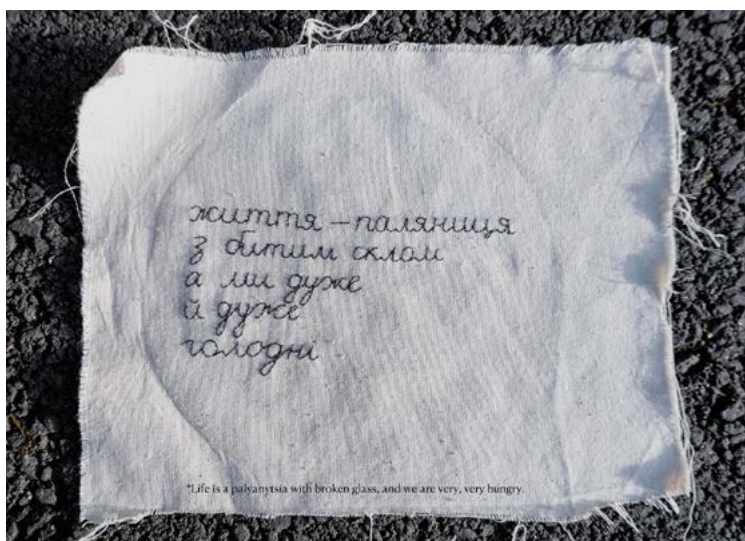 життя – паляниця
з битим склом
а ми дуже
й дуже
голодні
*Life is a palyanytsia with broken glass, and we are very, very hungry.